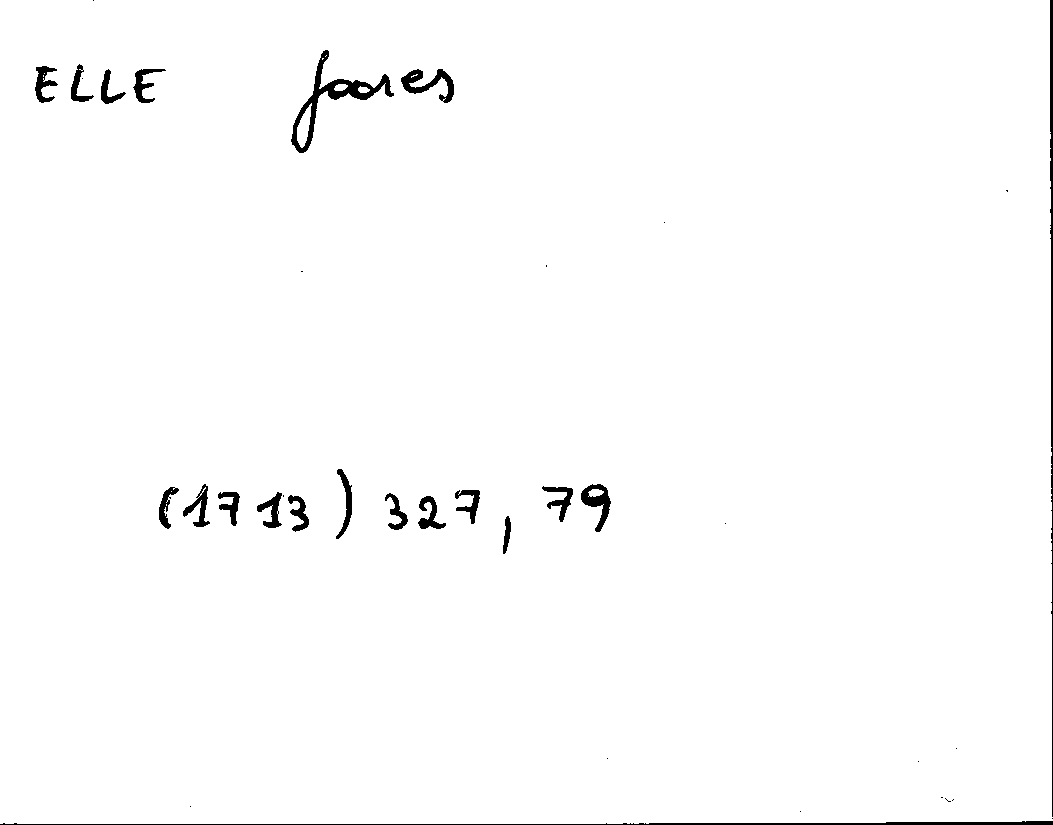 ELLE foores
(1713) 327, 79